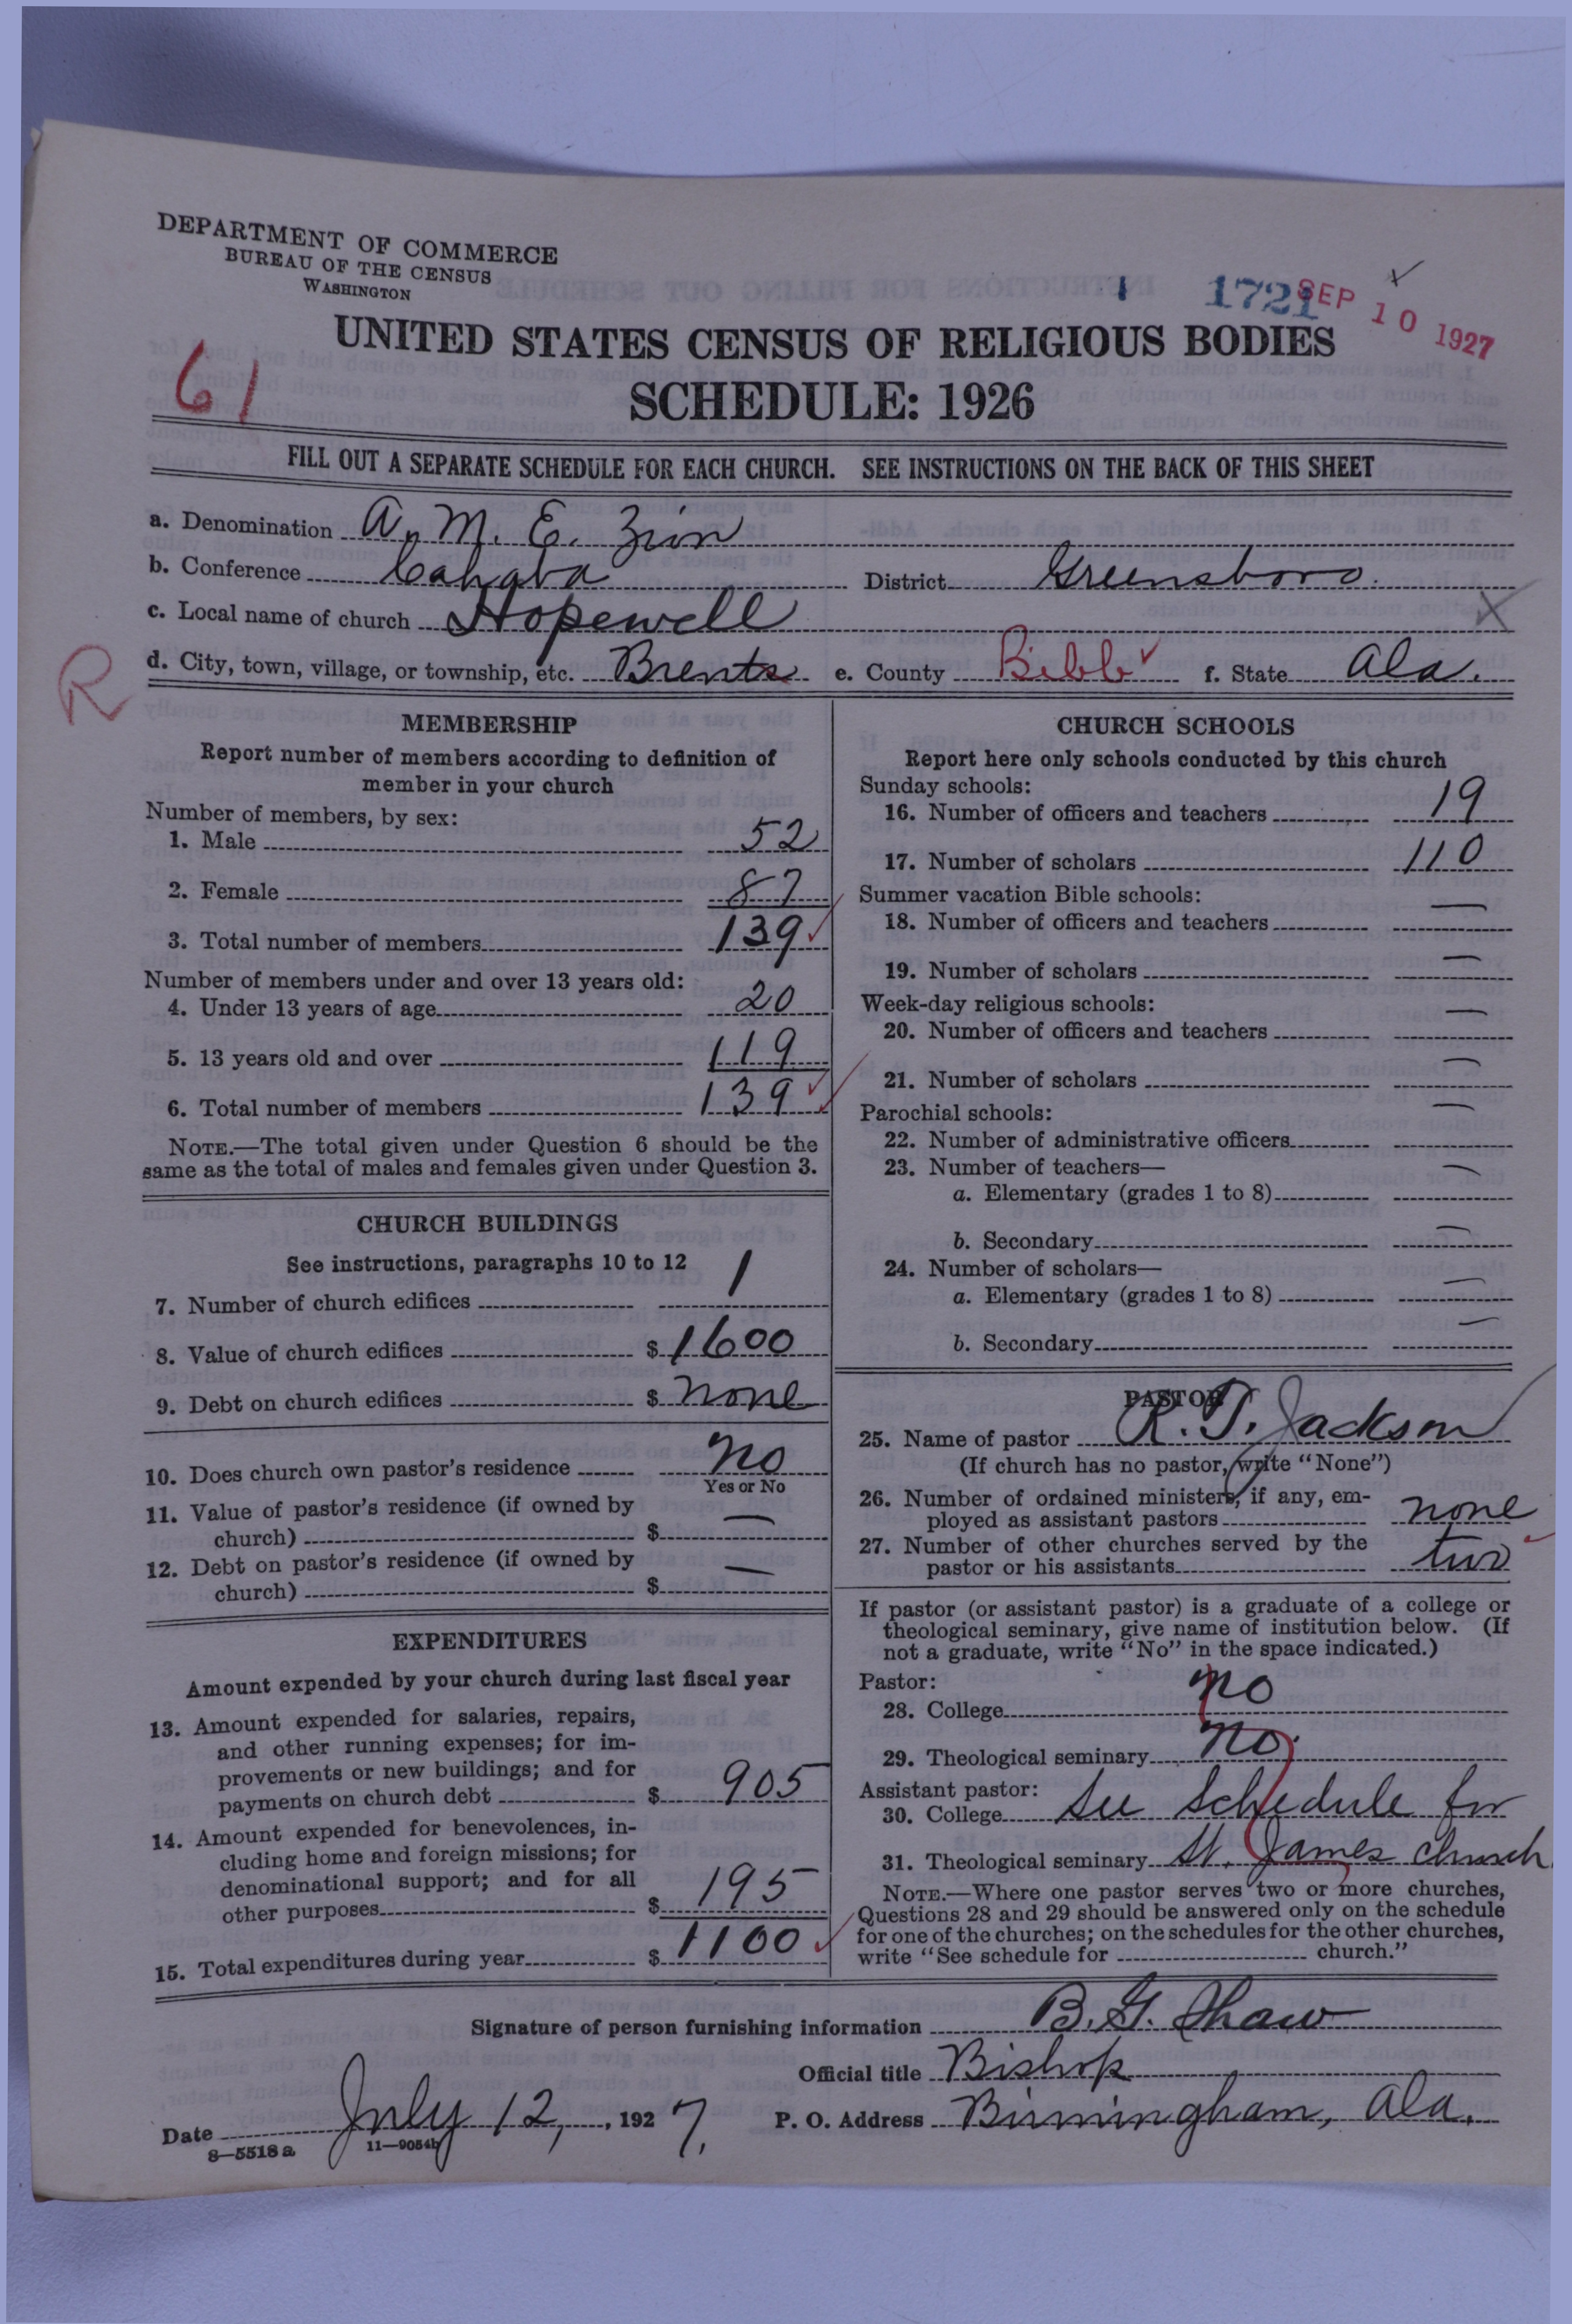 DEPARTMENT OF COMMERCE
BUREAU OF THE CENSUS
WASHINGTON
1721
SEP 10 1927
UNITED STATES CENSUS OF RELIGIOUS BODIES
61
SCHEDULE: 1926
FILL OUT A SEPARATE SCHEDULE FOR EACH CHURCH. SEE INSTRUCTIONS ON THE BACK OF THIS SHEET
a. Denomination A. M. E. Zion
b. Conference Cahaba District Greensboro.
c. Local name of church Hopewell X
R
d. City, town, village, or township, etc. Brents e. County Bibb f. State Ala.
MEMBERSHIP
Report number of members according to definition of
member in your church
Number of members, by sex:
1. Male 52
2. Female 87
3. Total number of members 139
Number of members under and over 13 years old:
4. Under 13 years of age 20
5. 13 years old and over 119
6. Total number of members 139
NOTE.—The total given under Question 6 should be the
same as the total of males and females given under Question 3.
CHURCH BUILDINGS
See instructions, paragraphs 10 to 12
7. Number of church edifices 1
8. Value of church edifices $ 1600
9. Debt on church edifices $ none
10. Does church own pastor's residence no
Yes or No
11. Value of pastor's residence (if owned by
church) $ —
12. Debt on pastor's residence (if owned by
church) $ —
EXPENDITURES
Amount expended by your church during last fiscal year
13. Amount expended for salaries, repairs,
and other running expenses; for im-
provements or new buildings; and for
payments on church debt $ 905
14. Amount expended for benevolences, in-
cluding home and foreign missions; for
denominational support; and for all
other purposes $ 195
15. Total expenditures during year $ 1100
CHURCH SCHOOLS
Report here only schools conducted by this church
Sunday schools:
16. Number of officers and teachers 19
17. Number of scholars 110
Summer vacation Bible schools:
18. Number of officers and teachers —
19. Number of scholars —
Week-day religious schools:
20. Number of officers and teachers —
21. Number of scholars —
Parochial schools:
22. Number of administrative officers —
23. Number of teachers—
a. Elementary (grades 1 to 8) —
b. Secondary —
24. Number of scholars—
a. Elementary (grades 1 to 8) —
b. Secondary —
PASTOR
25. Name of pastor R. T. Jackson
(If church has no pastor, write "None")
26. Number of ordained ministers, if any, em-
ployed as assistant pastors none
27. Number of other churches served by the
pastor or his assistants two
If pastor (or assistant pastor) is a graduate of a college or
theological seminary, give name of institution below. (If
not a graduate, write "No" in the space indicated.)
Pastor:
28. College no
29. Theological seminary no.
Assistant pastor:
30. College See Schedule for
31. Theological seminary St. James church.
NOTE.—Where one pastor serves two or more churches,
Questions 28 and 29 should be answered only on the schedule
for one of the churches; on the schedules for the other churches,
write "See schedule for church."
Signature of person furnishing information B. G. Shaw
Official title Bishop
Date July 12, 1927. P. O. Address Birmingham, Ala.
8—5518 a 11—9054b